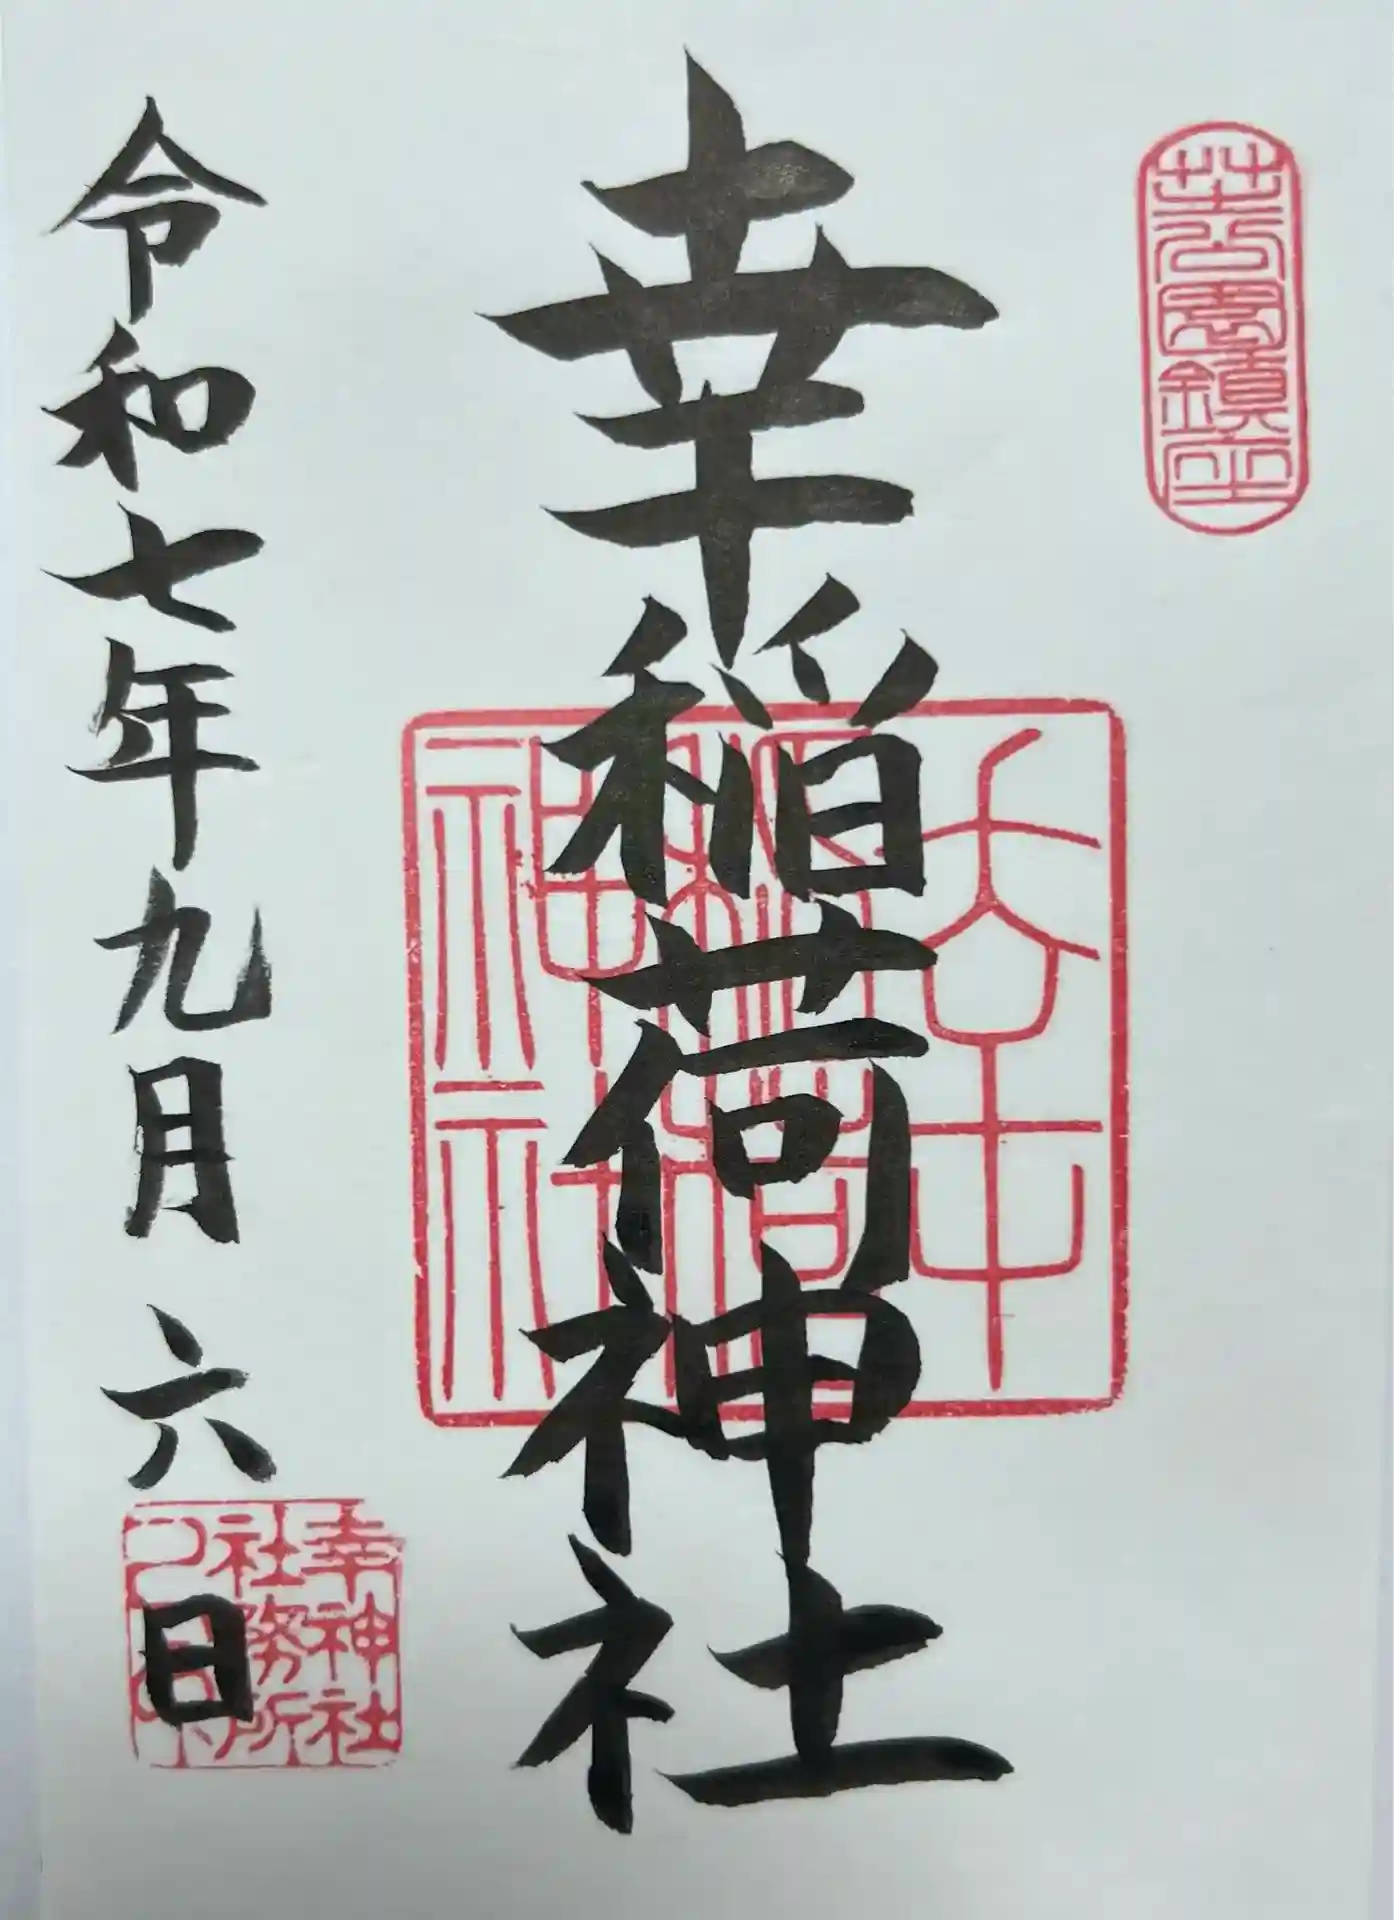 芝公園鎮座
幸稲荷神社
幸
稲荷
神社
令和七年九月六日
幸神社
社務所
之印